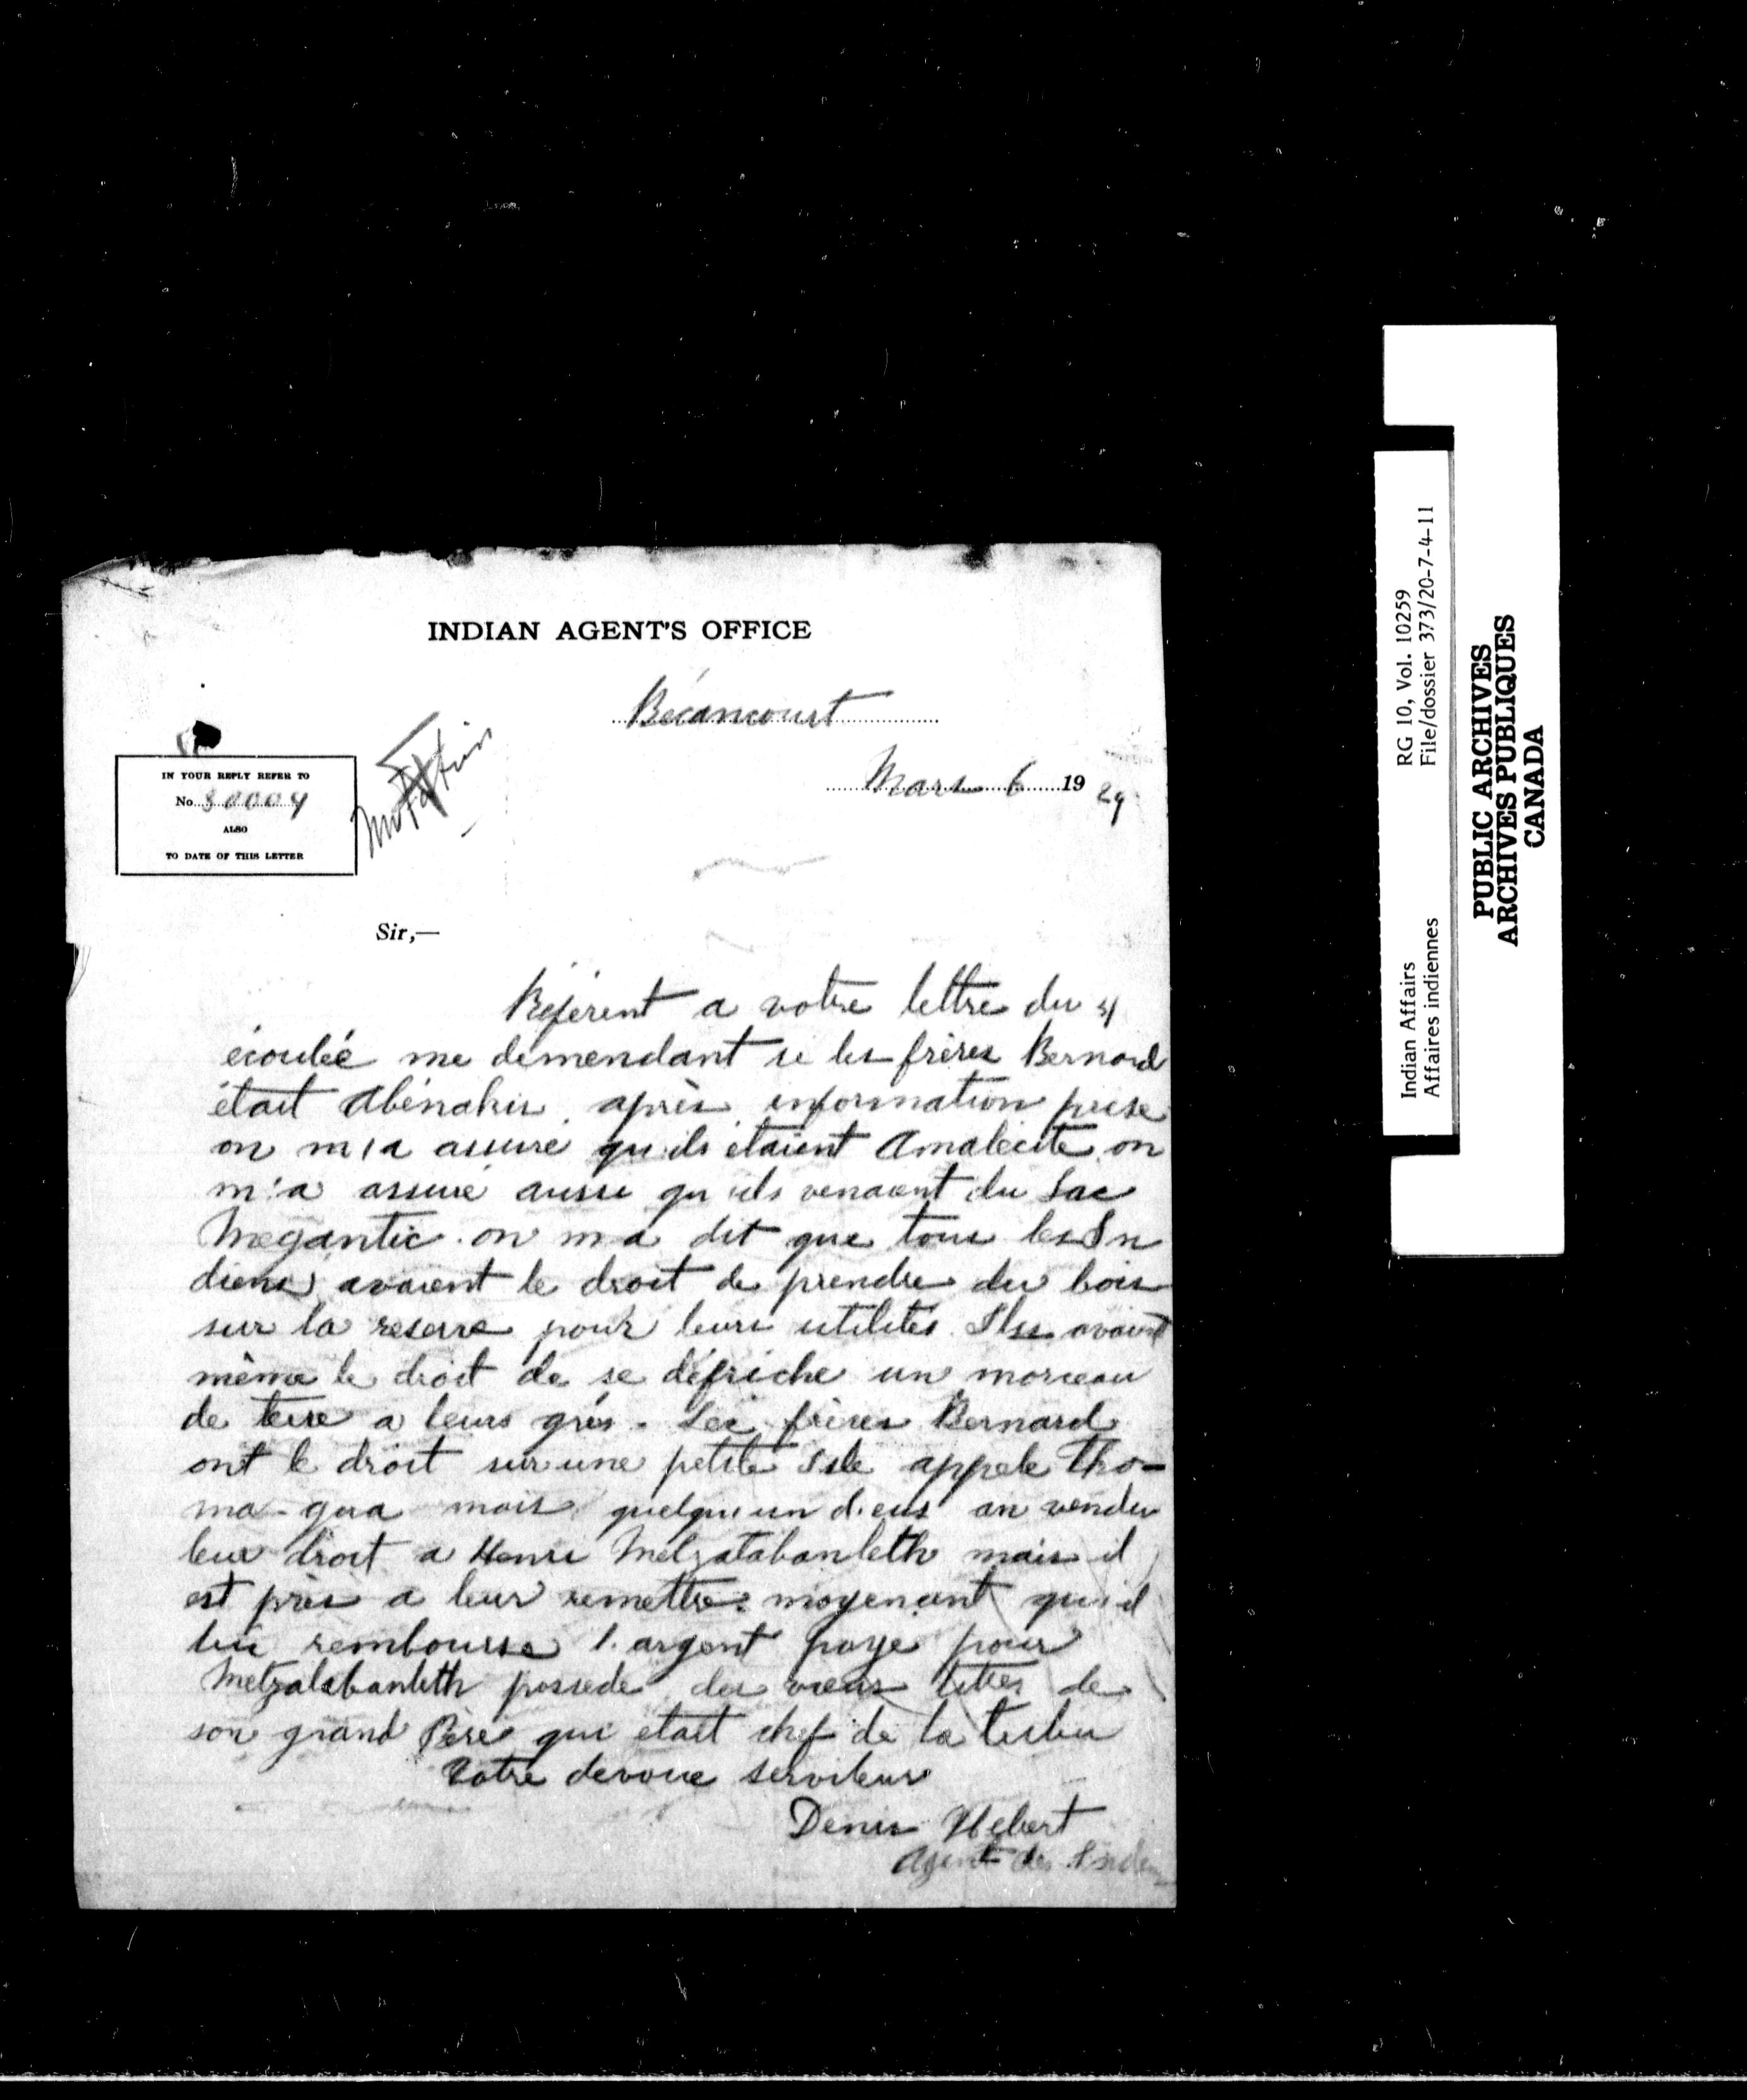 INDIAN AGENT'S OFFICE
Bécancourt
Mars 6 19 29
IN YOUR REPLY REFER TO
No 30004
ALSO
TO DATE OF THIS LETTER
Sir,—
Référent a votre lettre du
écoulée me demendant si les frères Bernard
était Abénakis après information prise
on m'a assuré qu'ils étaient Amalecite on
m'a assuré aussi qu'ils venaent du Lac
Megantic. on m a dit que tous les In
diens avaient le droit de prendre du bois
sur la reserve pour leurs utilités. Ils avaient
même le droit de se défriche un morceau
de terre a leurs grés. Les frères Bernard
ont le droit sur une petite Isle appele Tho-
ma-gua mais quelqu'un d'eus an vendu
leur droit a Henri Metzalabanleth mais il
est près a leur remettre moyenant qu'il
lui rembourse l'argent payé pour
Metzalabanleth possede des vieus titres de
son grand Père qui etait chef de la tribu
Votre devoue serviteur
Denis Hebert
Agent des
Indian Affairs RG 10, Vol. 10259
Affaires indiennes File/dossier 373/20-7-4-11
PUBLIC ARCHIVES
ARCHIVES PUBLIQUES
CANADA